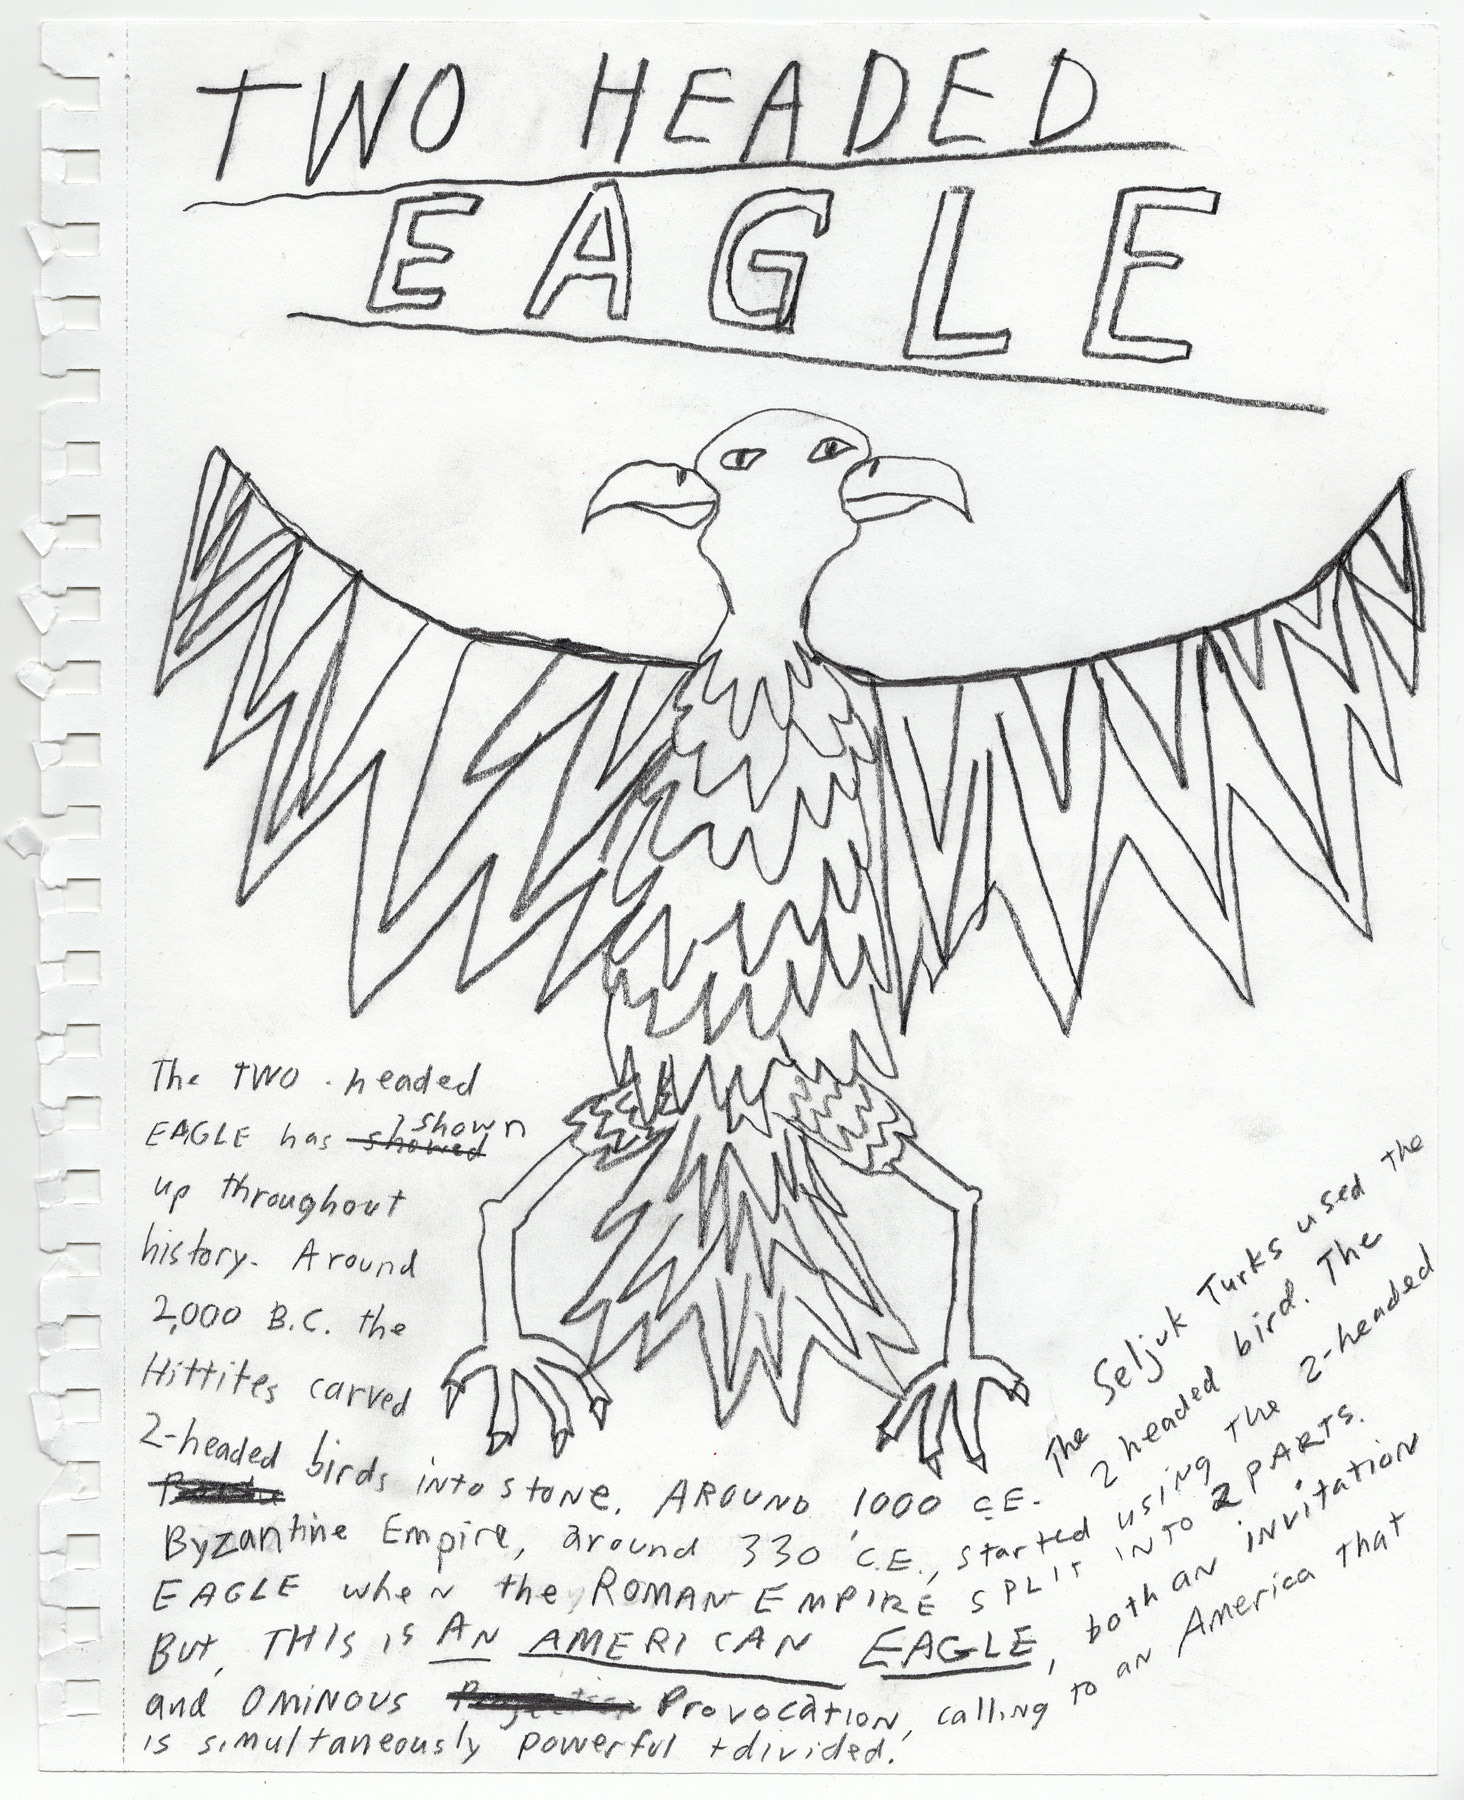 TWO HEADED
EAGLE
The TWO-headed
EAGLE has showed shown
up throughout
history. Around
2,000 B.C. the
Hittites carved
2-headed birds into stone. AROUND 1000 C.E. The Seljuk Turks used the
2 headed bird. The
Byzantine Empire, around 330 C.E., started using the 2-headed
EAGLE when the ROMAN EMPIRE SPLIT INTO 2 PARTS.
But, THIS is AN AMERICAN EAGLE, both an invitation
and OMINOUS Provocation, calling to an America that
is simultaneously powerful + divided.